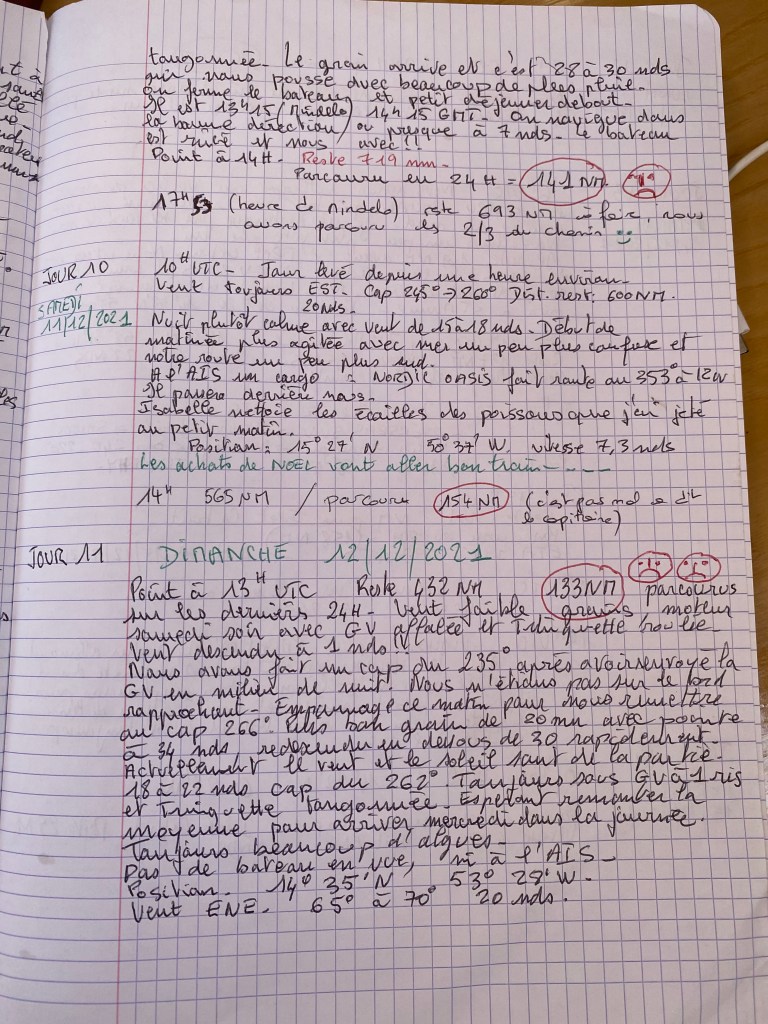 tangonnée. Le grain arrive et c'est 28 à 30 nds
qui nous pousse avec beaucoup de plus pluie.
On ferme le bateau et petit déjeuner debout.
Il est 13H15 (Mindelo) 14H15 GMT. On navigue dans
la bonne direction, ou presque à 7 nds. Le bateau
est rincé et nous avec!!
Point à 14H. Reste 719 nm.
Parcouru en 24H = 141 NM
17H (heure de Mindelo) reste 693 NM à faire, nous
avons parcouru les 2/3 du chemin
JOUR 10
10H UTC - Jour levé depuis une heure environ.
Vent toujours EST. Cap 245° → 260° Dist. rest: 600 NM.
20 nds.
SAMEDI
11/12/2021
Nuit plutôt calme avec vent de 15 à 18 nds. Début de
matinée plus agitée avec mer un peu plus confuse et
notre route un peu plus sud.
A l'AIS un cargo : NORDIC OASIS fait route au 353° à 12 N
Il passera derrière nous.
Isabelle nettoie les écailles des poissons que j'ai jeté
au petit matin.
Position: 15° 27' N 50° 37' W. vitesse 7,3 nds
Les achats de NOEL vont aller bon train - - - -
14H 565 NM / parcouru 154 NM (c'est pas mal a dit
le capitaine)
JOUR 11 DIMANCHE 12/12/2021
Point à 13H UTC Reste 432 NM 133 NM parcourus
sur les derniers 24H - Vent faible grains, moteur
samedi soir avec GV affalée et Trinquette roulée
Vent descendu à 1 nds!!
Nous avons fait un cap du 235° après avoir renvoyé la
GV en milieu de nuit. Nous n'étions pas sur le bord
rapprochant - Empannage ce matin pour nous remettre
au cap 266°. Puis bon grain de 20 mn avec pointe
à 34 nds, redescendu en dessous de 30 rapidement.
Actuellement le vent et le soleil sont de la partie.
18 à 22 nds cap du 262°. Toujours sous GV à 1 ris
et Trinquette tangonnée. Espérant remonter la
moyenne pour arriver mercredi dans la journée.
Toujours beaucoup d'algues -
Pas de bateau en vue, ni à l'AIS -
Position. 14° 35' N 53° 28' W -
Vent ENE. 65° à 70° 20 nds.